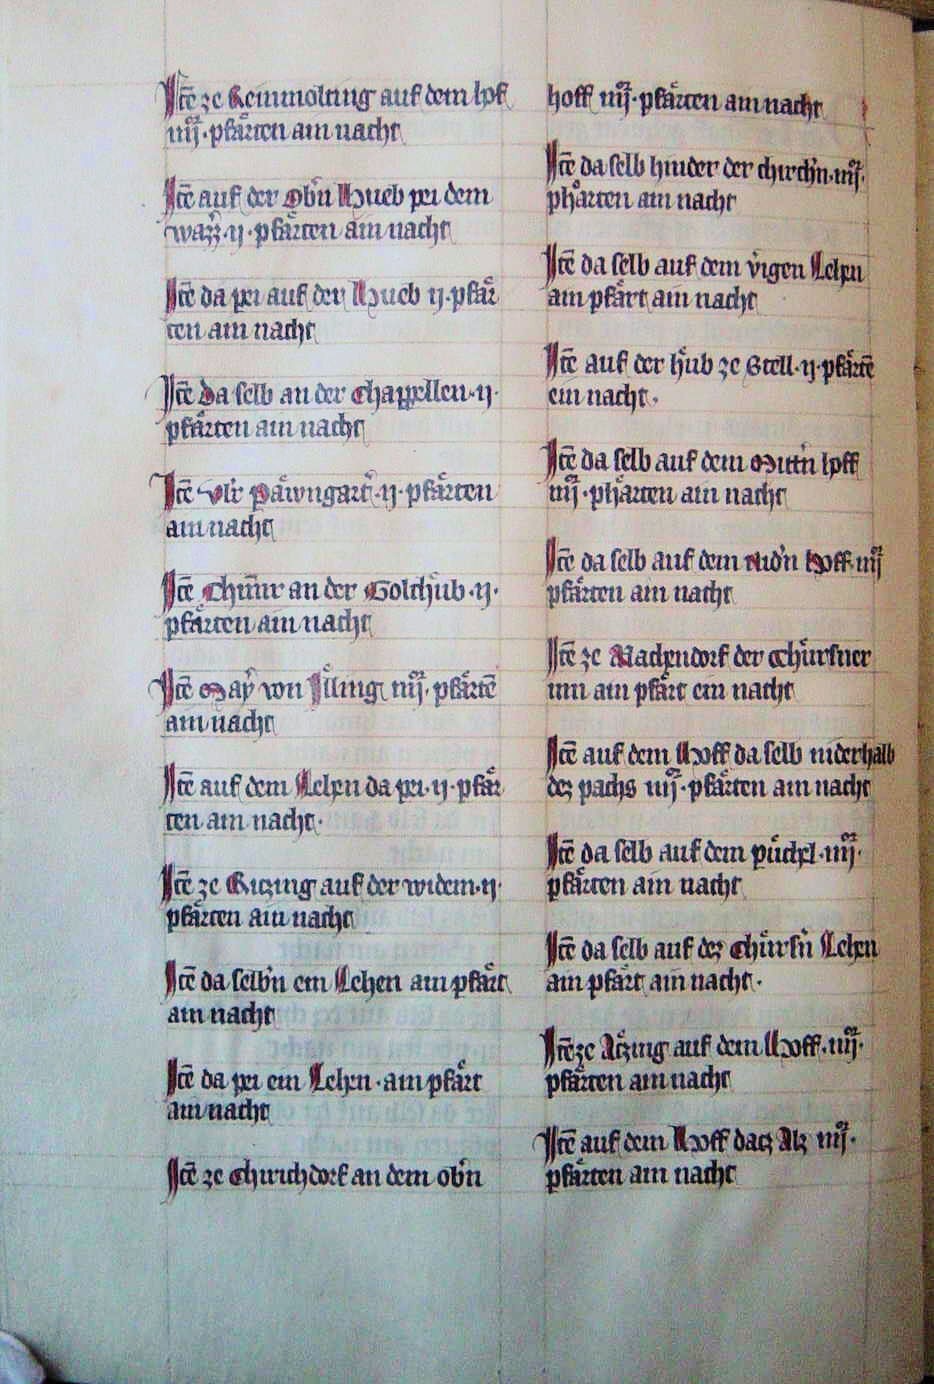 Itē ze Reinmolting auf dem hof
iiij · pfärten ain nacht
Itē auf der Obn̄ Hueb pei dem
wazz̄ · ij · pfärten ain nacht
Itē da pei auf der Hueb ij · pfär
ten ain nacht
Itē da selb an der Chappellen · ij ·
pfärten ain nacht
Itē Vlr Päwngart̄ · ij · pfärten
ain nacht
Itē Chunr an der Golchub · ij ·
pfärten ain nacht
Itē Maȳ von Jlling iiij · pfärtē
ain nacht
Itē auf dem Lehen da pei · ij · pfär
ten ain nacht ·
Itē ze Gitzing auf der widem · ij ·
pfärten ain nacht
Itē da selbn̄ ein Lehen ain pfärt
ain nacht
Itē da pei ein Lehen · ain pfärt
ain nacht
Itē ze Chirichdorf an dem obn̄
hoff iiij · pfärten ain nacht
Itē da selb hinder der chirchn̄ · iiij ·
phärten ain nacht
Itē da selb auf dem v̄igen Lehen
ain pfärt ain nacht
Itē auf der hub ze Stell · ij · pfärtē
ein nacht ·
Itē da selb auf dem Mittn̄ hoff
iiij · phärten ain nacht
Itē da selb auf dem nidn̄ Hoff iiij
pfärten ain nacht
Itē ze Nachendorf der Chürsner
inn ain pfärt ein nacht
Itē auf dem Hoff da selb niderhalb
dez pachs iiij · pfärten ain nacht
Itē da selb auf dem püchel · iiij ·
pfärten ain nacht
Itē da selb auf dez Chürsn̄ Lehen
ain pfärt ain nacht ·
Itē ze Ätzing auf dem Hoff · iiij ·
pfärten ain nacht
Itē auf dem Hoff datz Alz iiij ·
pfärten ain nacht